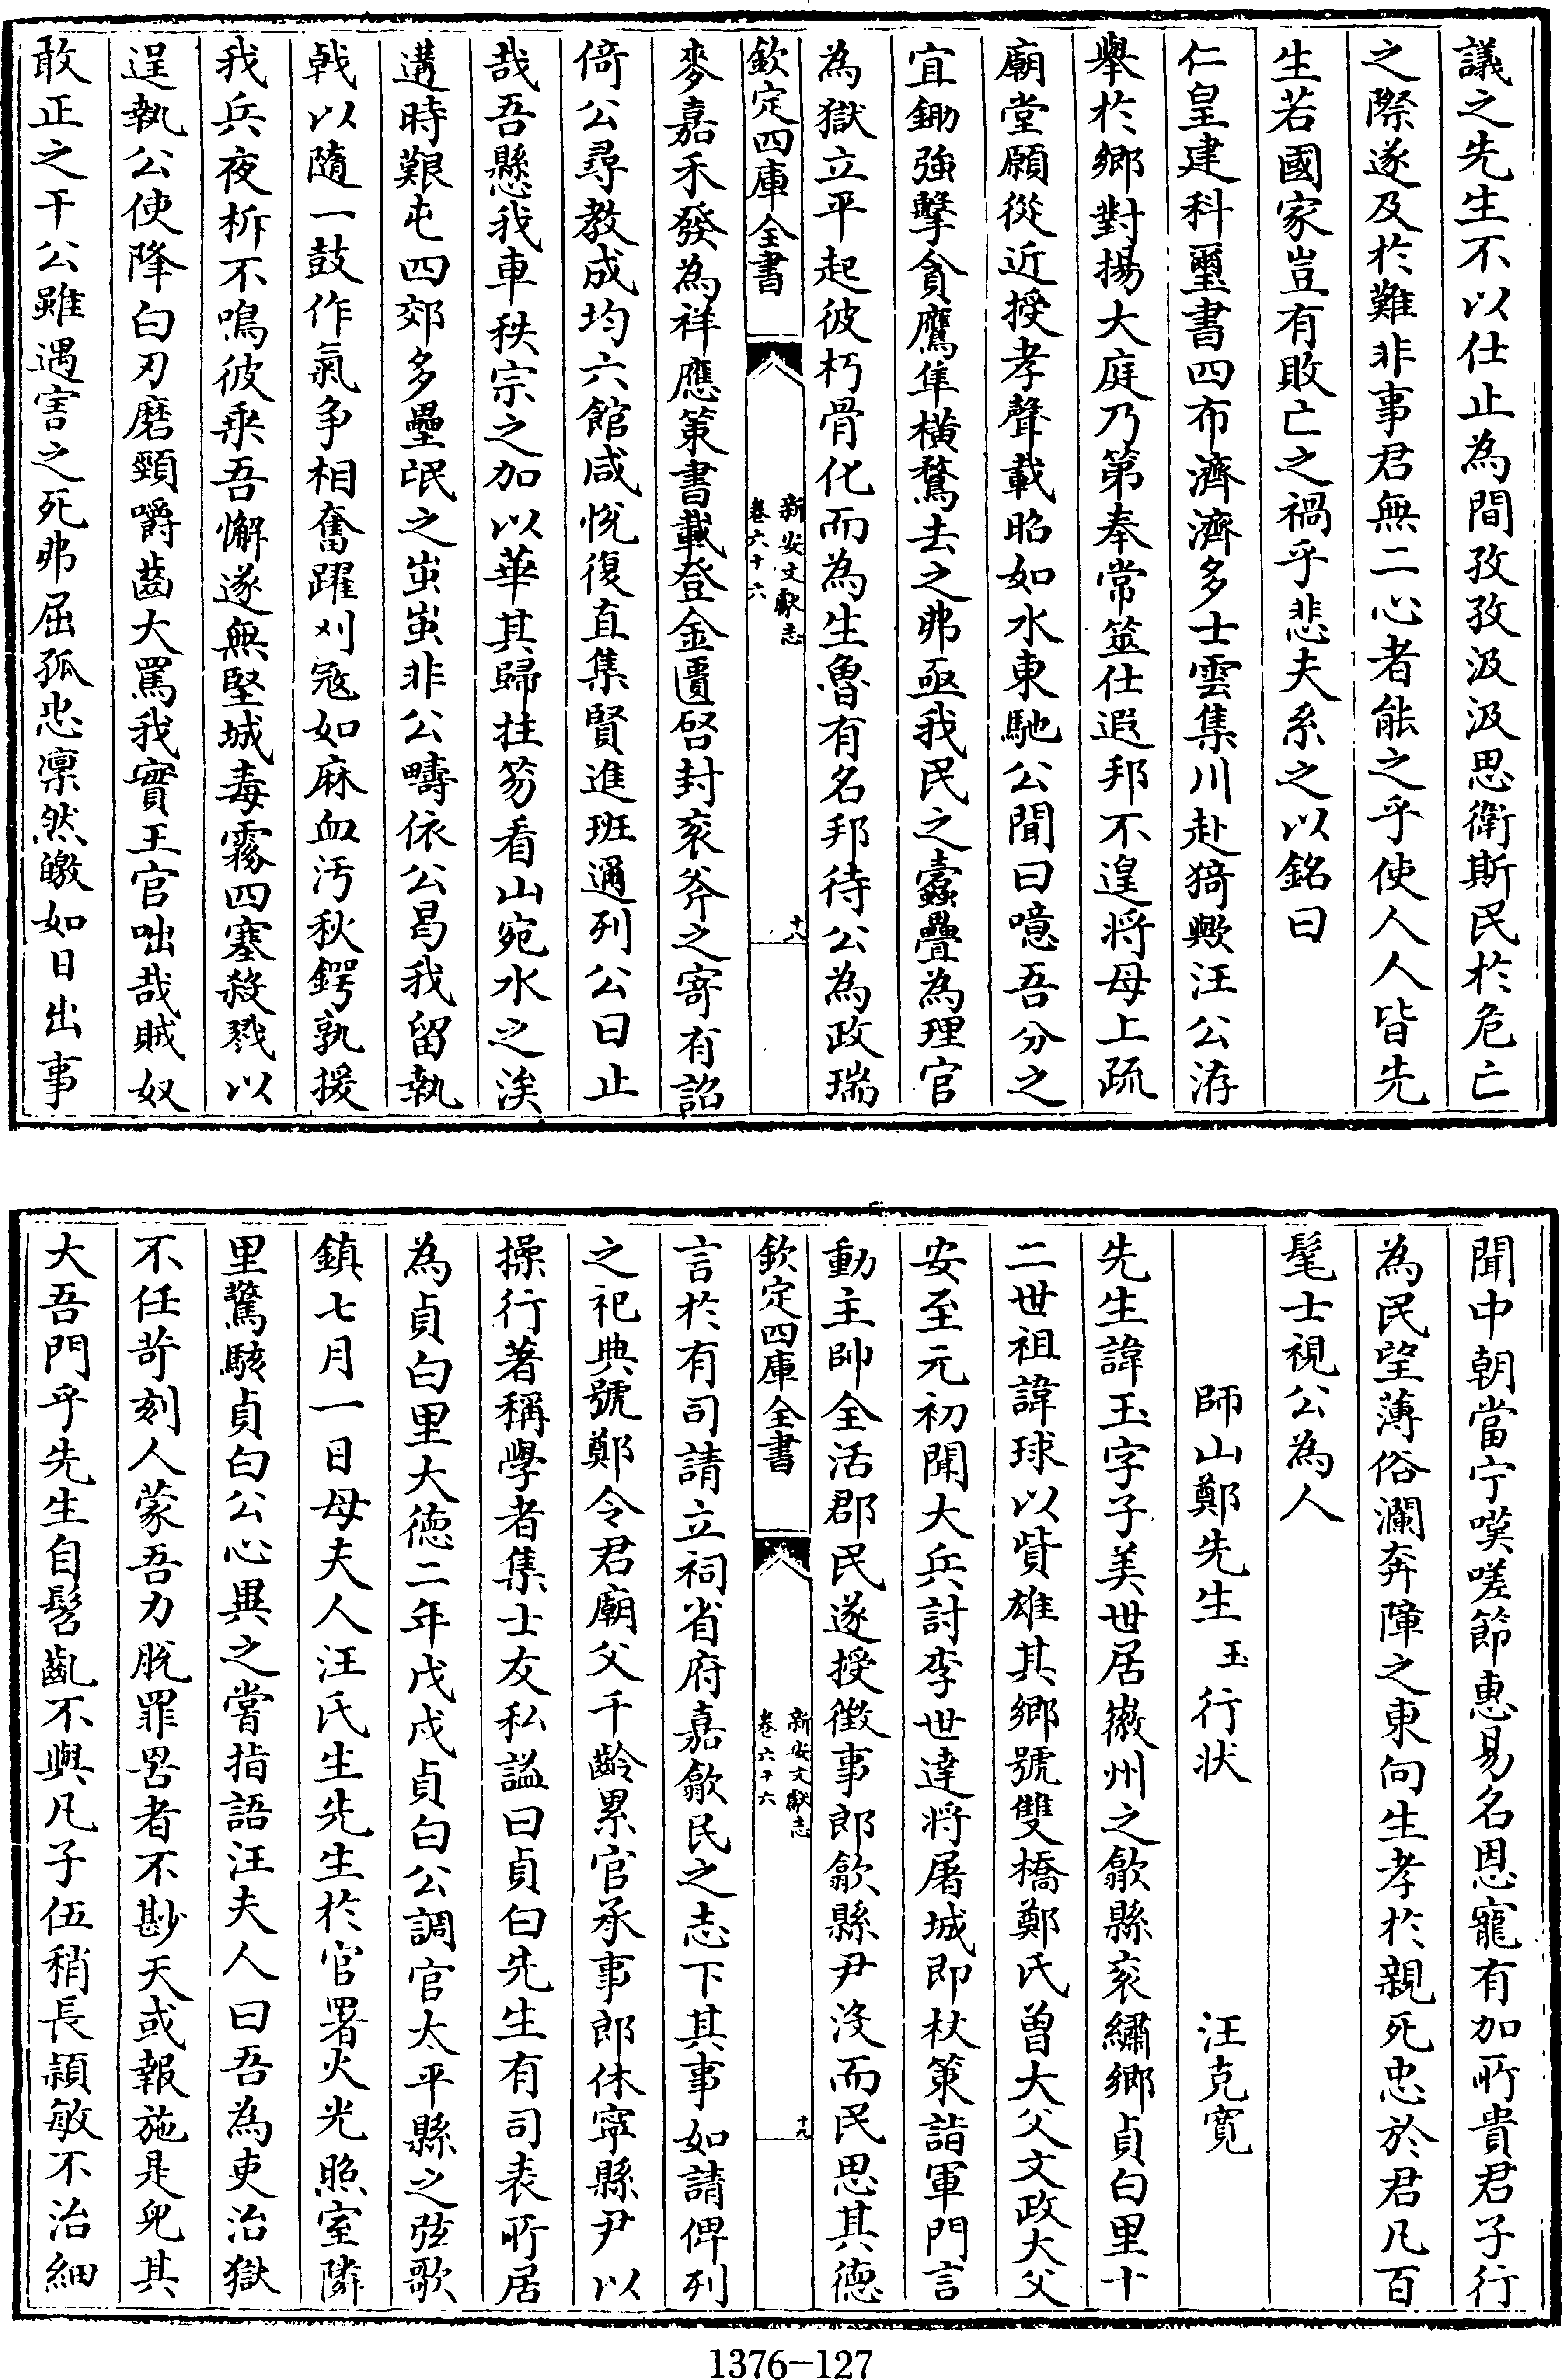 議之先生不以仕止為間孜孜汲汲思衛斯民於危亡
之際遂及於難非事君無二心者能之乎使人人皆先
生若國家豈有敗亡之禍乎悲夫系之以銘曰
仁皇建科璽書四布濟濟多士雲集川赴猗歟汪公洊
舉於鄉對揚大庭乃第奉常筮仕遐邦不遑將母上疏
廟堂願從近授孝聲載昭如水東馳公聞曰噫吾分之
宜鋤強擊貪鷹隼橫騖去之弗亟我民之蠹疊為理官
為獄立平起彼朽骨化而為生魯有名邦待公為政瑞
欽定四庫全書
新安文獻志
卷六十六
十八
麥嘉禾發為祥應策書載登金匱啓封衮斧之寄有詔
倚公尋教成均六館咸悅復直集賢進班通列公曰止
哉吾懸我車秩宗之加以華其歸拄笏看山宛水之涘
遘時艱屯四郊多壘氓之蚩蚩非公疇依公曷我留執
戟以隨一鼓作氣争相奮躍刈冦如麻血汚秋鍔孰援
我兵夜柝不鳴彼乘吾懈遂無堅城毒霧四塞殺戮以
逞執公使降白刃磨頸嚼齒大罵我實王官咄哉賊奴
敢正之干公雖遇害之死弗屈孤忠凜然皦如日出事
聞中朝當宁嘆嗟節惠易名恩寵有加所貴君子行
為民望薄俗瀾奔障之東向生孝於親死忠於君凡百
髦士視公為人
師山鄭先生玉行狀　汪克寛
先生諱玉字子美世居徽州之歙縣衮繡鄉貞白里十
二世祖諱球以貲雄其鄉號雙橋鄭氏曾大父文政大父
安至元初聞大兵討李世達將屠城即杖策詣軍門言
動主帥全活郡民遂授徵事郎歙縣尹沒而民思其德
欽定四庫全書
新安文獻志
卷六十六
十九
言於有司請立祠省府嘉歙民之志下其事如請俾列
之祀典號鄭令君廟父千齡累官承事郎休寧縣尹以
操行著稱學者集士友私謚曰貞白先生有司表所居
為貞白里大德二年戊戌貞白公調官太平縣之弦歌
鎮七月一日母夫人汪氏生先生於官署火光照室隣
里驚駭貞白公心異之嘗指語汪夫人曰吾為吏治獄
不任苛刻人蒙吾力脫罪罟者不尠天或報施是兒其
大吾門乎先生自髫齓不與凡子伍稍長穎敏不治細
1376-127